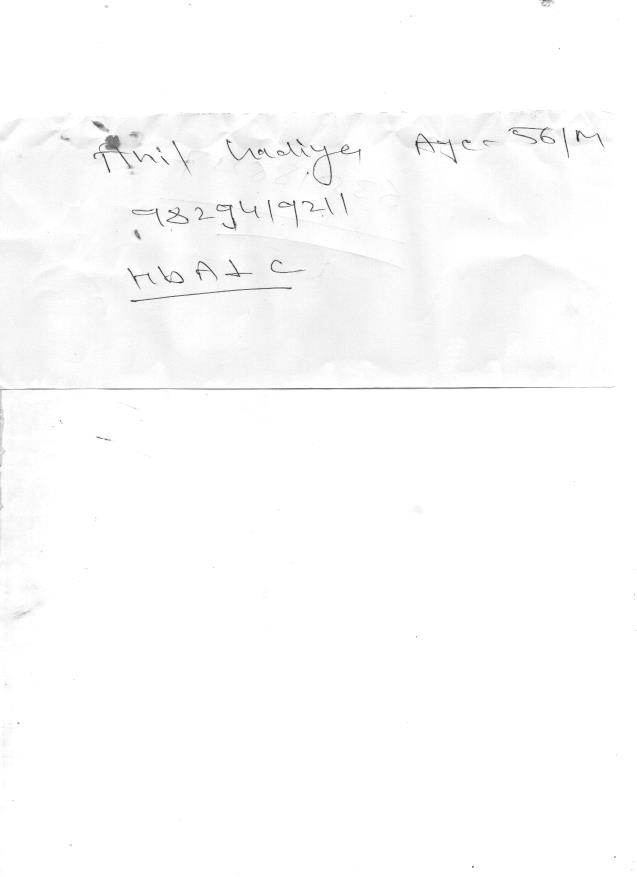 Anil Age - 56/M
9829419211
HbA1C